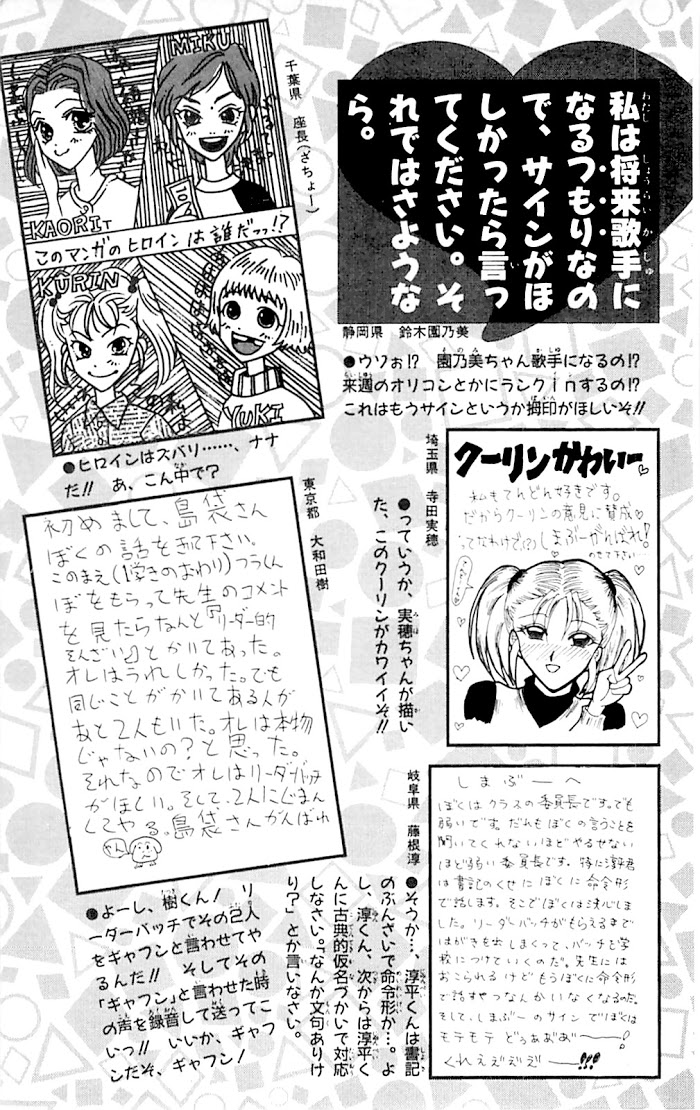 私は将来歌手に
なるつもりなの
で、サインがほ
しかったら言っ
てください。そ
れではさような
ら。
静岡県 鈴木園乃美
●ウソぉ!? 園乃美ちゃん歌手になるの!?
来週のオリコンとかにランクinするの!?
これはもうサインというか拇印がほしいぞ!!
千葉県 座長(ざちょー)
MIKU
KAORI
このマンガのヒロインは誰だっっ!?
KURIN
YUKI
●ヒロインはズバリ……、ナナ
だ!! あ、こん中で?
埼玉県 寺田実穂
クーリンかわいー
私もてんどん好きです。
だからクーリンの意見に賛成
ってなわけで(?)しまぶーがんばれ!
のせて下さい
●っていうか、実穂ちゃんが描い
た、このクーリンがカワイイぞ!!
東京都 大和田樹
初めまして、島袋さん
ぼくの話をきて下さい。
このまえ(1学きのおわり)フラくん
ぼをもらって先生のコメント
を見たらなんと『リーダー的
そんざい』とかいてあった。
オレはうれしかった。でも
同じことがかいてある人が
あと2人もいた。オレは本物
じゃないの?と思った。
それなのでオレはリーダーバッチ
がほしい。そして、2人にじまん
してやる。島袋さんがんばれ
●よーし、樹くん! リ
ーダーバッチでその2人
をギャフンと言わせてや
るんだ!! そしてその
「ギャフン」と言わせた時
の声を録音して送ってこ
いっ!! いいか、ギャフ
ンだぞ、ギャフン!
岐阜県 藤根淳
しまぶーへ
ぼくはクラスの委員長です。でも
弱いです。だれもぼくの言うことを
聞いてくれないほどやるせない
ほど弱い委員長です。特に淳平君
は書記のくせにぼくに命令形
で話します。そこでぼくは決心しま
した。リーダーバッチがもらえるまで
はがきを出しまくって、バッチを学
校につけていくのだ。先生には
おこられるけどもうぼくに命令形
で話すやつなんかいなくなるのだ。
そして、しまぶーのサインでぼくは
モテモテ どぅあぁあ゛ー!
くれえぇぇぇー!!!
●そうか…、淳平くんは書記
のぶんざいで命令形か…。よ
し、淳くん、次からは淳平く
んに古典的仮名づかいで対応
しなさい。「なんか文句ありけ
り?」とか言いなさい。